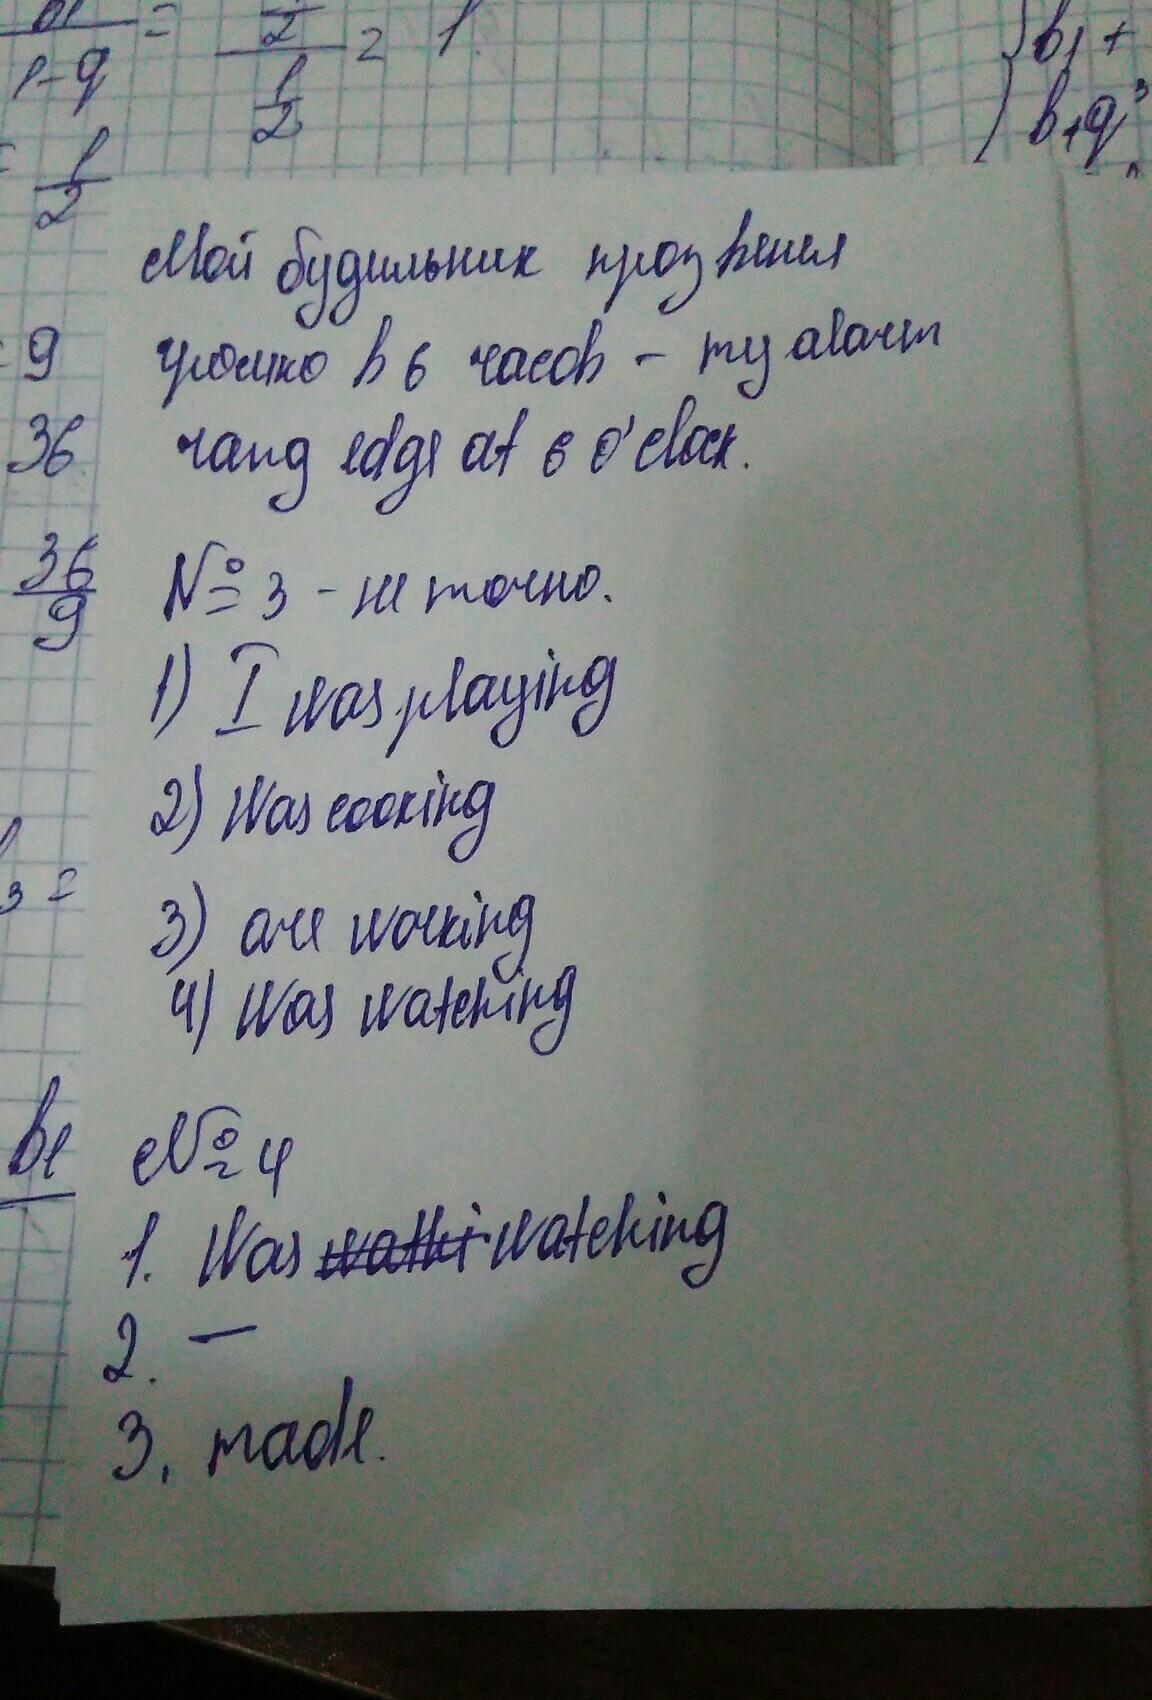 1-q
=
1
2
1
2
= 1.
b1 +
b1q³
1
2
9
36
36
9
3 =
b1
Мой будильник прозвенел
громко в 6 часов - my alarm
rang edge at 6 o'clock.
№ 3 - не точно.
1) I was playing
2) Was cooking
3) are working
4) Was watching
№ 4
1. Was watching
2. —
3. made.